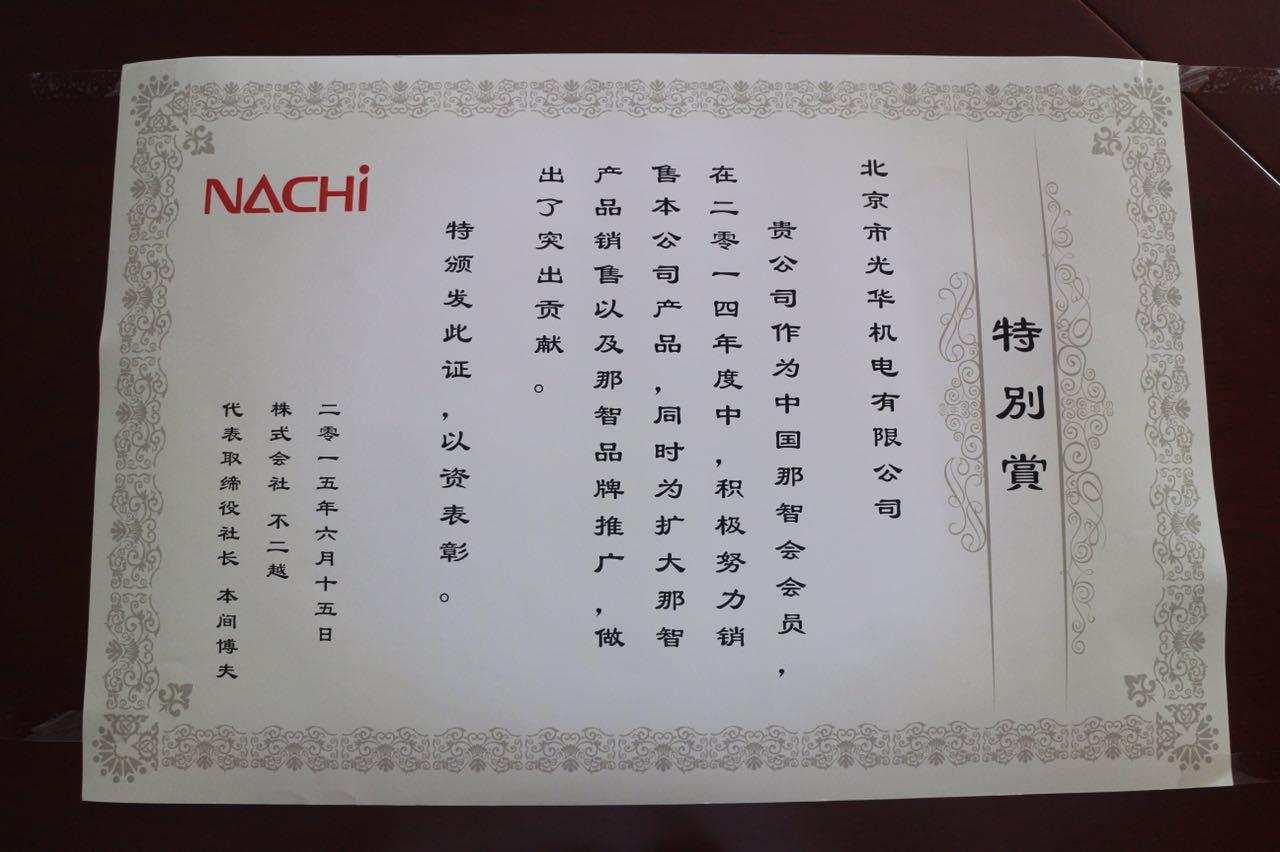 特別賞
北京市光华机电有限公司
贵公司作为中国那智会会员，
在二零一四年度中，积极努力销
售本公司产品，同时为扩大那智
产品销售以及那智品牌推广，做
出了突出贡献。
特颁发此证，以资表彰。
二零一五年六月十五日
株式会社 不二越
代表取缔役社长 本间博夫
NACHi